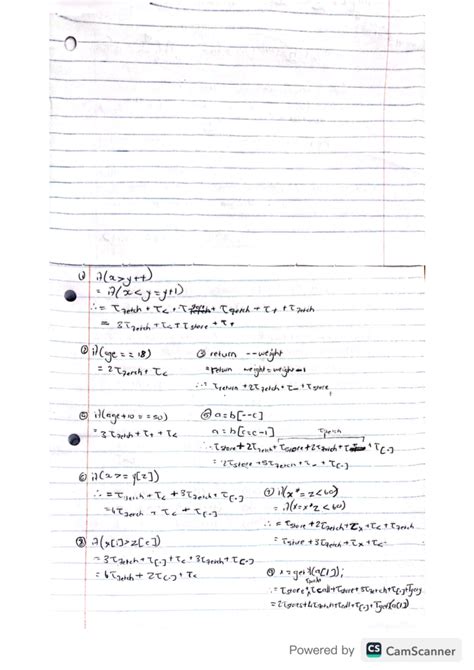 ① if(x>y++)
= if(x<y=y+1)
∴ = τfetch + τ< + τstore + τfetch + τ+ + τfetch
= 3τfetch + τ< + τstore + τ+
② if(age == 18)
= 2τfetch + τ<
③ return --weight
=return weight=weight-1
∴ τreturn + 2τfetch + τ- + τstore
if(age+10 == 50)
= 3τfetch + τ+ + τ<
⑤ a=b[--c]
a=b[c=c-1]
∴ τstore + 2τfetch + τstore + 2τfetch + τ- + τ[.]
= 2τstore + 5τfetch + τ- + τ[.]
⑥ if(a >= y[z])
∴ = τfetch + τ< + 3τfetch + τ[.]
= 4τfetch + τ< + τ[.]
⑦ if(x*=z<60)
= if(x=x*z<60)
∴ = τstore + 2τfetch + τx + τ< + τfetch
= τstore + 3τfetch + τx + τ<
if(x[i]>z[c])
= 3τfetch + τ[.] + τ< + 3τfetch + τ[.]
= 6τfetch + 2τ[.] + τ<
Powered by CS CamScanner